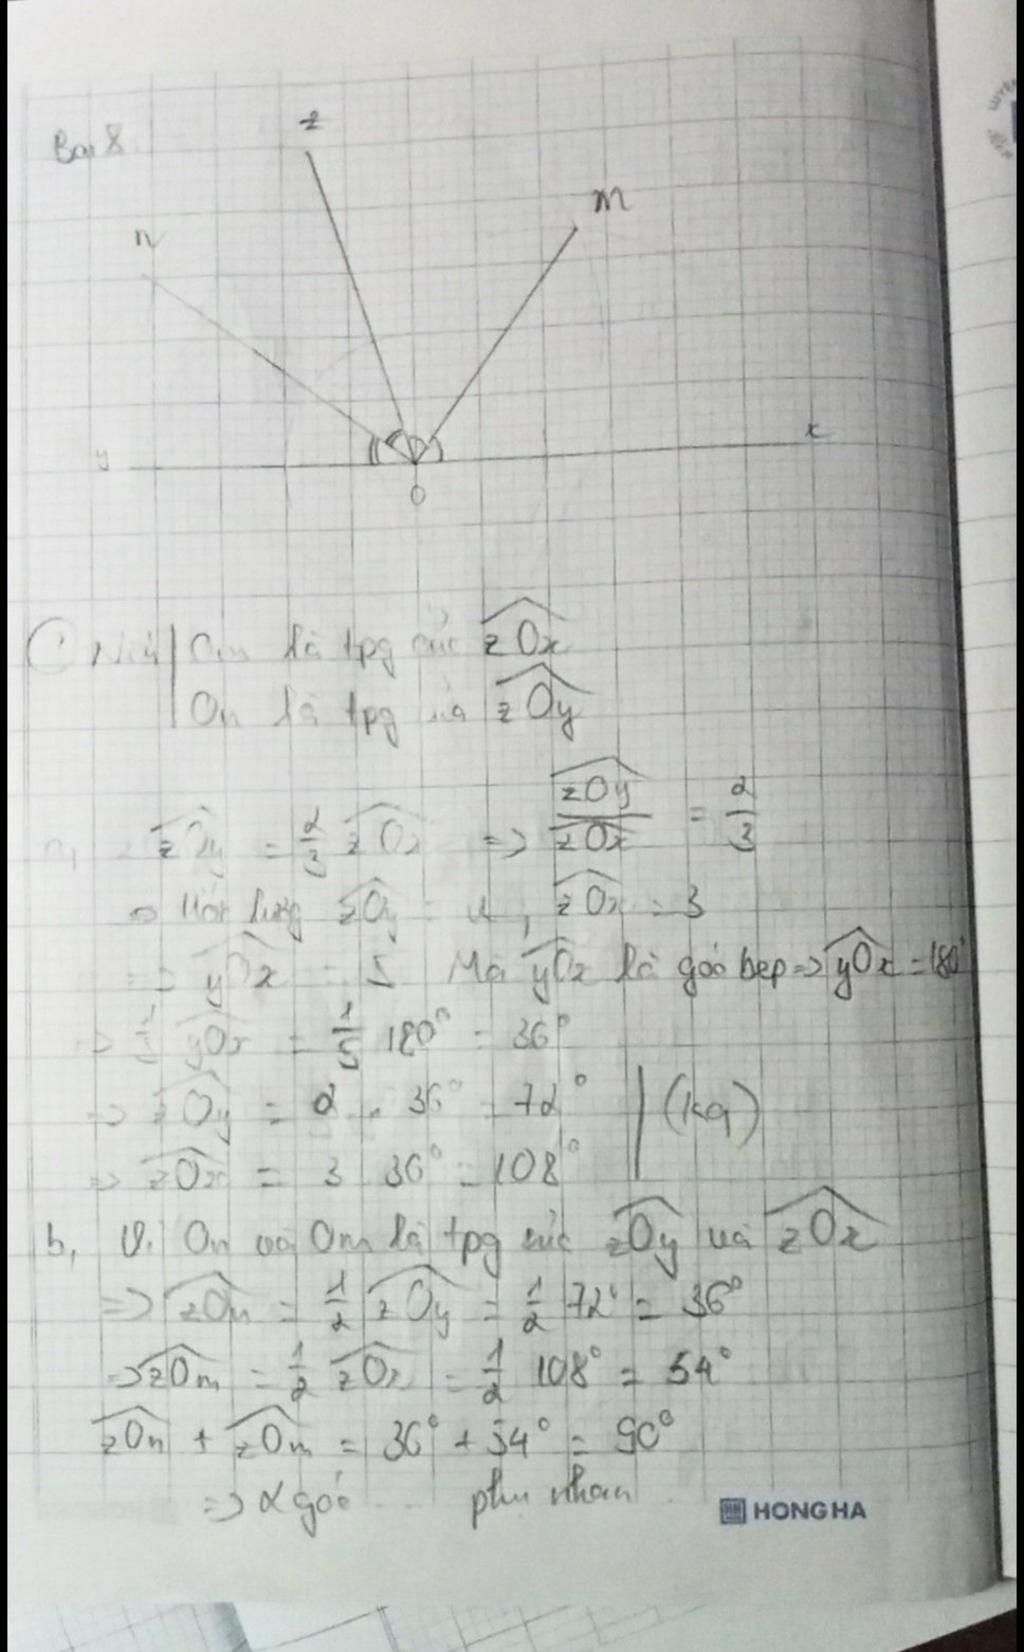 Bài 8
z
m
n
x
y
O
Om là tpg của zOx
On là tpg của zOy
zOy = 2/3 zOx => zOy/zOx = 2/3
zOy = 2, zOx = 3
=> yOx = 5 Mà yOx là góc bẹp => yOx = 180°
=> 1/5 yOx = 1/5 180° = 36°
=> zOy = 2 . 36° = 72°
(kq)
=> zOx = 3 36° = 108°
b, Vì On và Om là tpg của zOy và zOx
=> zOn = 1/2 zOy = 1/2 72° = 36°
=> zOm = 1/2 zOx = 1/2 108° = 54°
zOn + zOm = 36° + 54° = 90°
=> 2 góc phụ nhau
HONG HA